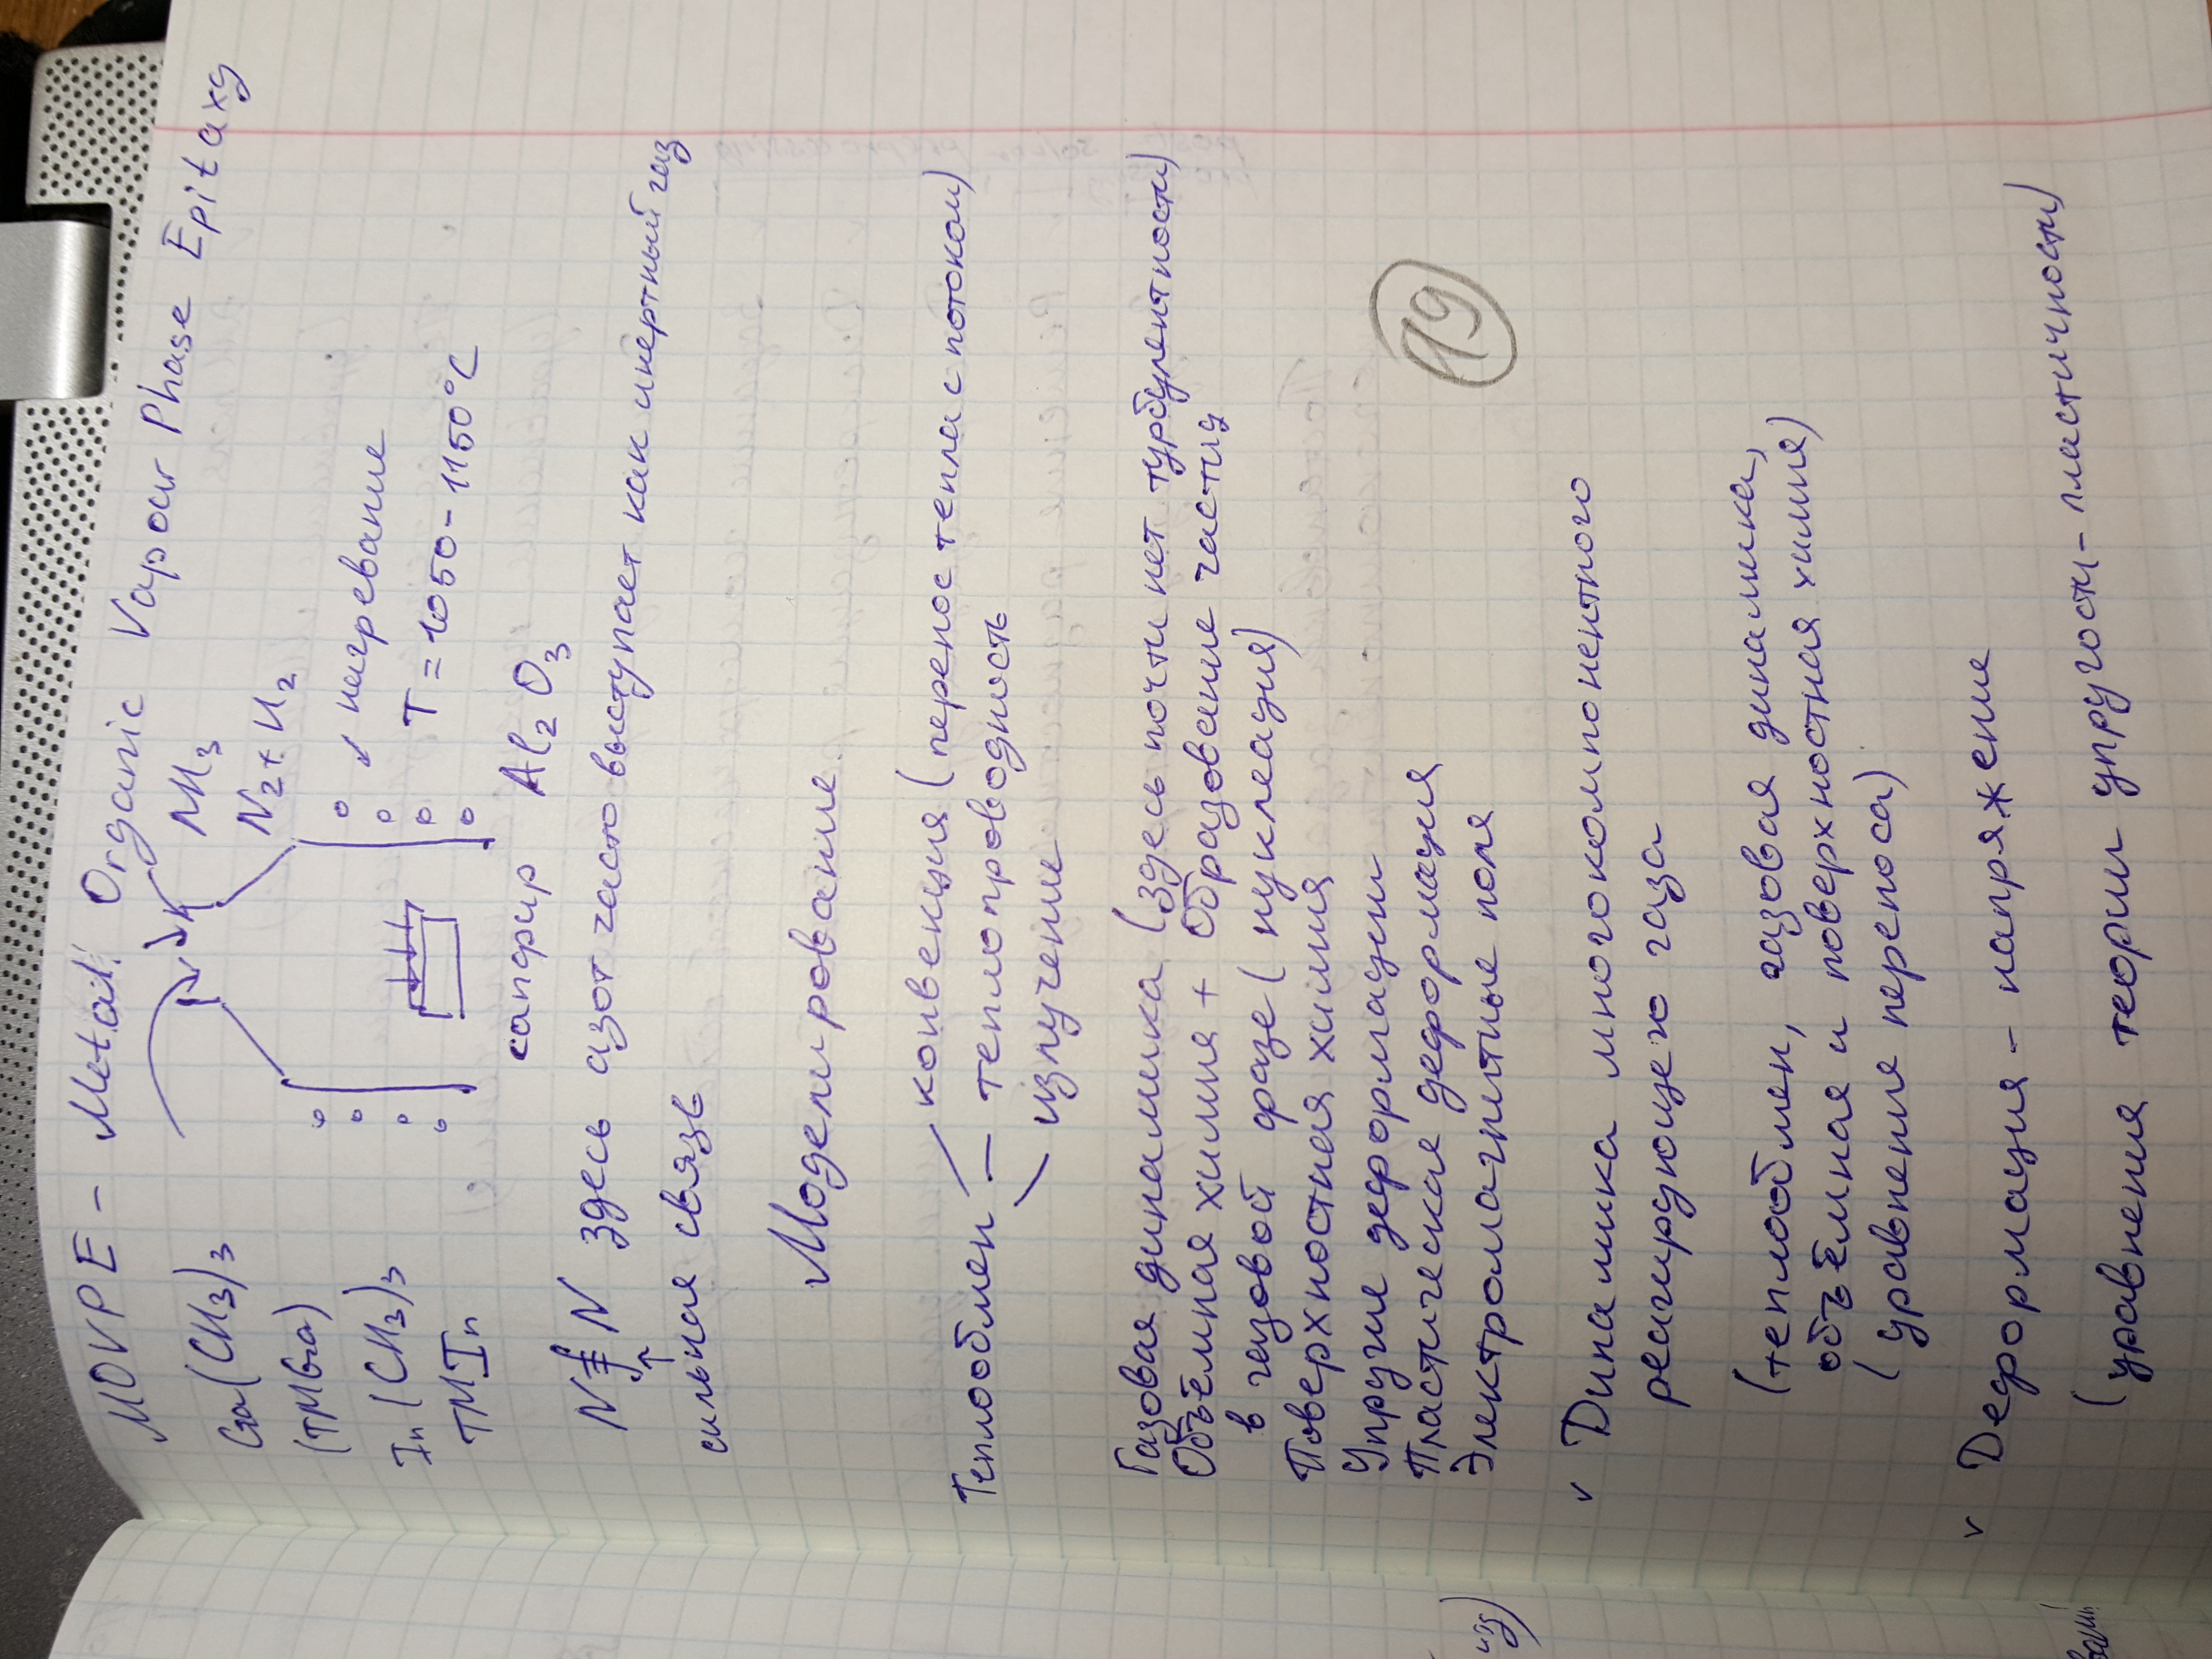 MOVPE - Metal Organic Vapour Phase Epitaxy
Ga(CH₃)₃
NH₃
(TMGa)
N₂ + H₂
In(CH₃)₃
нагревание
TMIn
T = 1050 - 1150°C
сапфир Al₂O₃
N≡N здесь азот часто выступает как инертный газ
сильная связь
Моделирование
конвекция (перенос тепла с потоком)
Теплообмен — теплопроводность
излучение
Газовая динамика (здесь почти нет турбулентности)
Объёмная химия + Образование частиц
в газовой фазе (нуклеация)
Поверхностная химия
Упругие деформации
Пластическая деформация
Электромагнитные поля
19
✓ Динамика многокомпонентного
реагирующего газа
(теплообмен, газовая динамика,
объёмная и поверхностная химия)
(уравнение переноса)
✓ Деформация - напряжение
(уравнения теории упругости - пластичности)